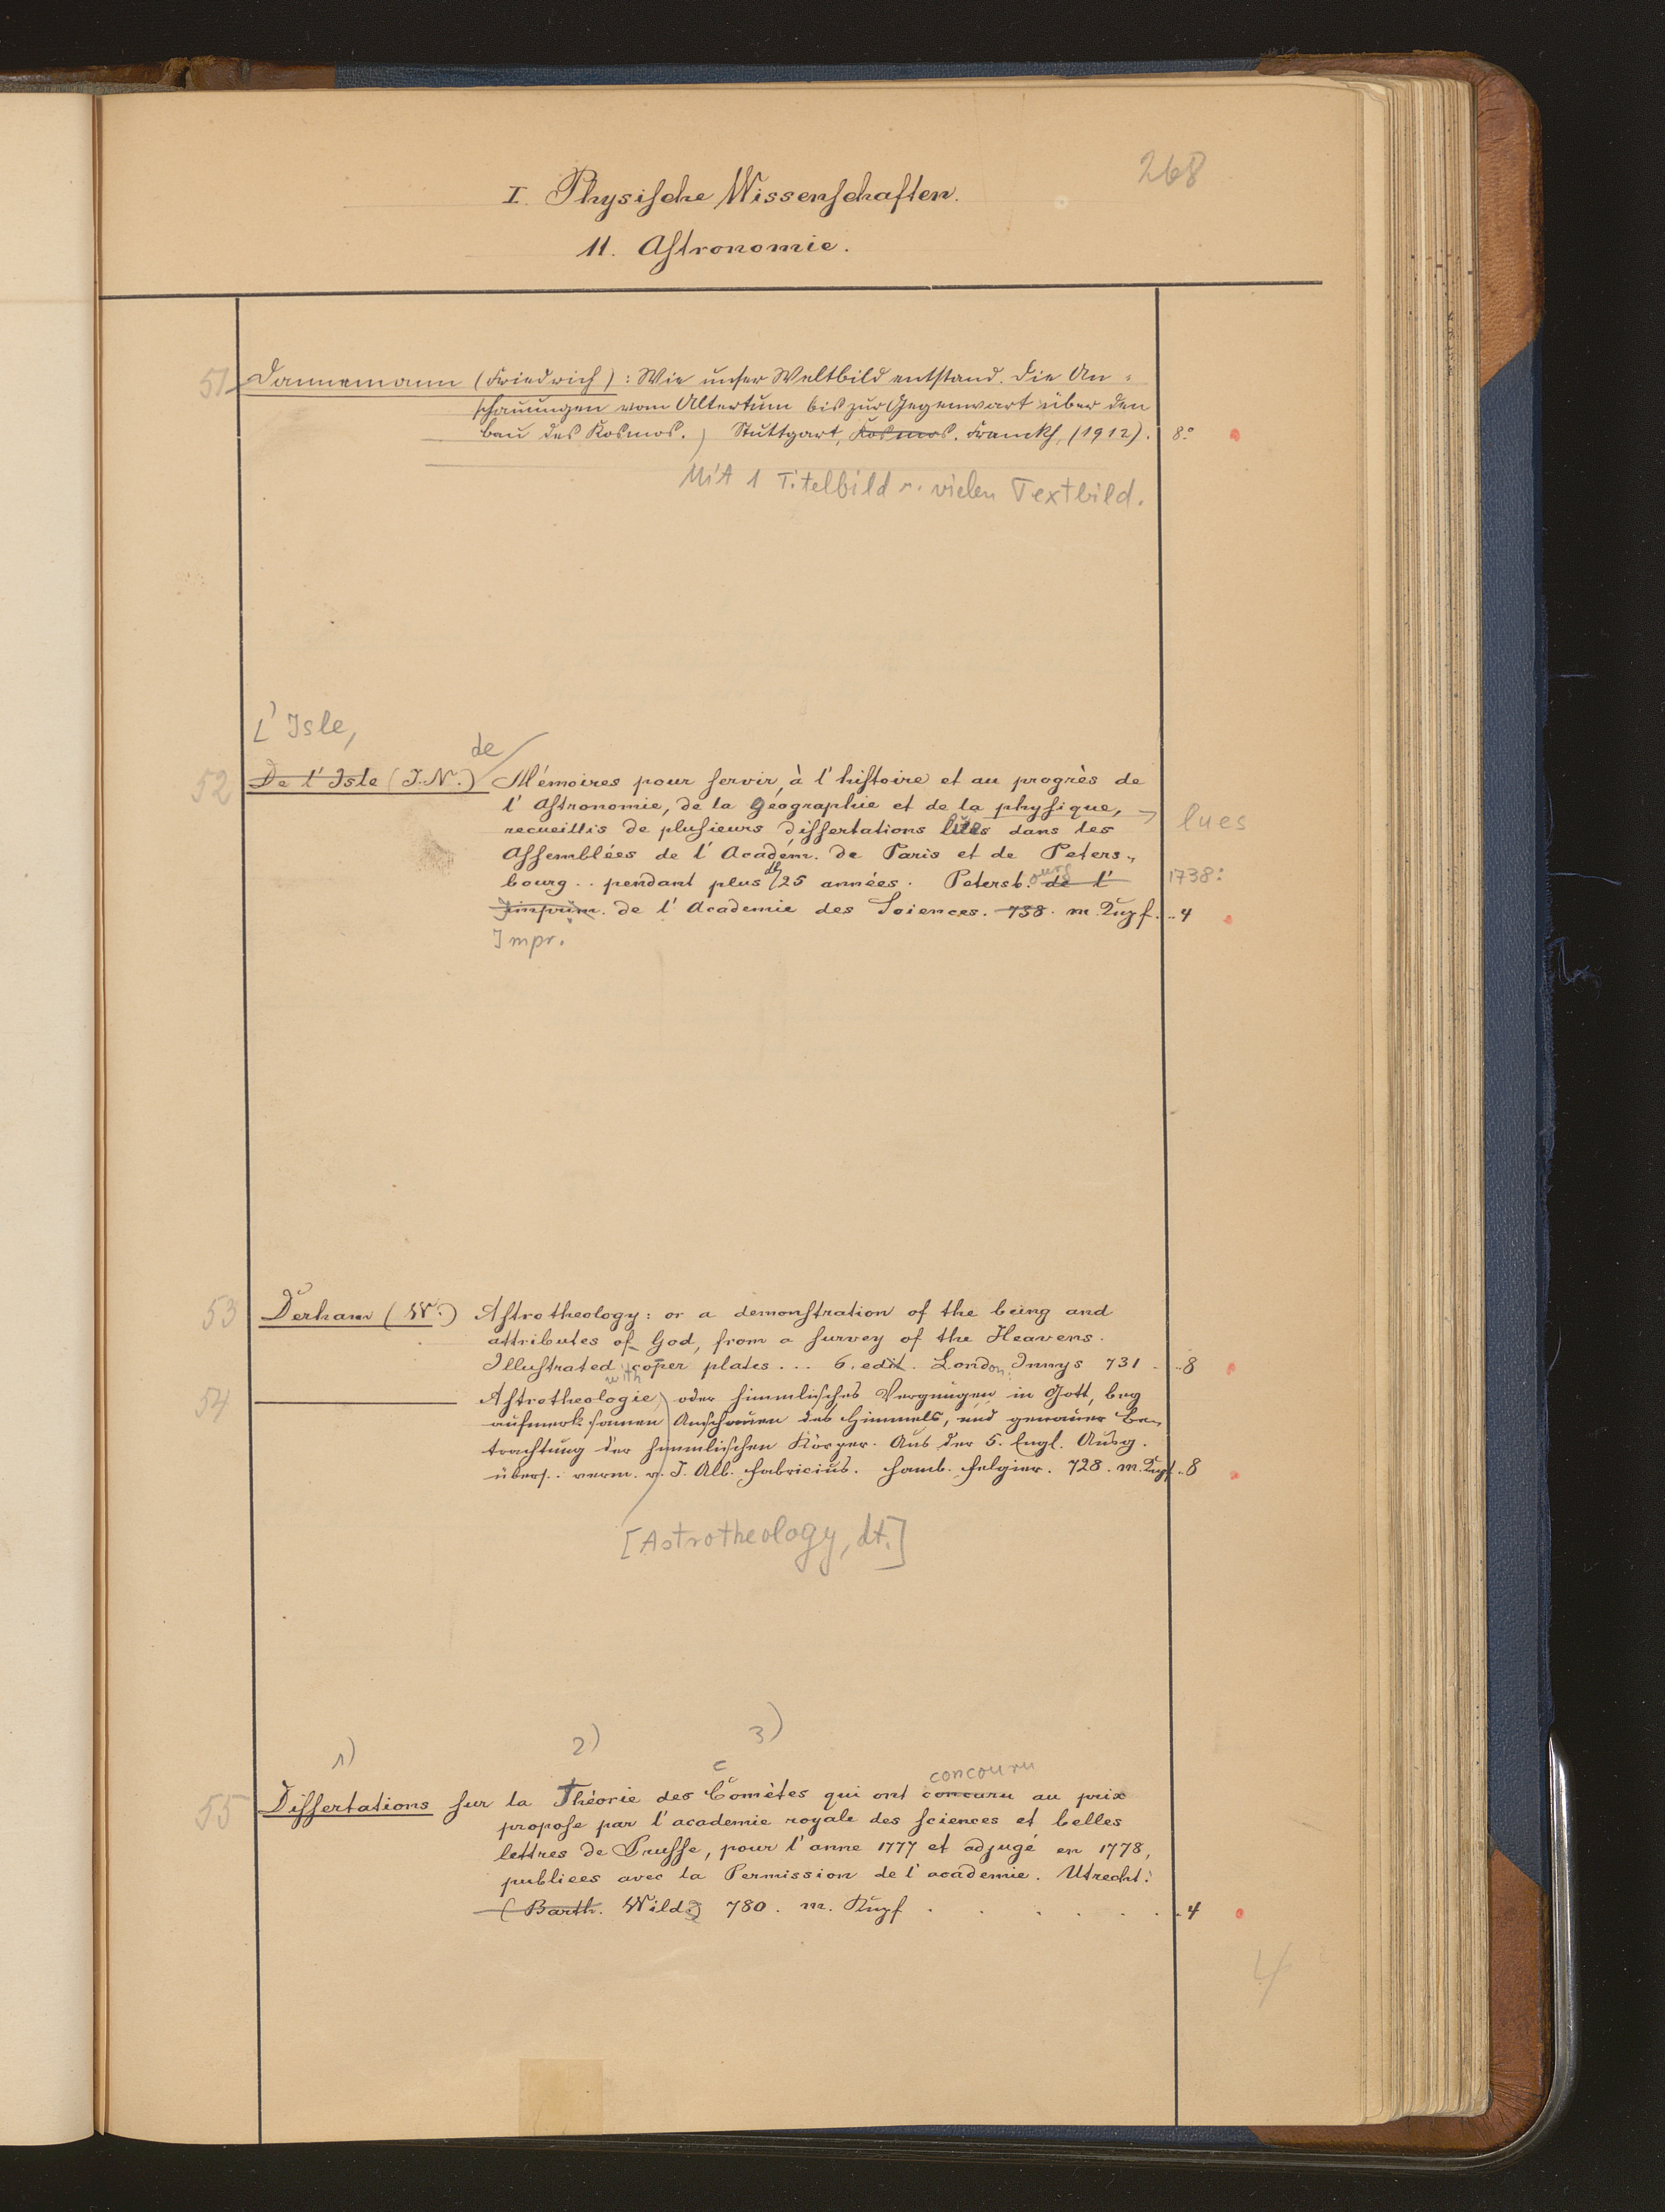 268
I. Physische Wissenschaften.
11. Astronomie.
51 Dannemann (Friedrich): Wie unser Weltbild entstand. Die An=
schauungen vom Altertum bis zur Gegenwart über den
Bau des Kosmos. Stuttgart, Kosmos. Franckh, (1912). 8°
Mit 1 Titelbild u. vielen Textbild.
L'Isle,
de
52 De l'Isle (J.N.) Mémoires pour servir à l'histoire et au progrès de
l'Astronomie, de la Géographie et de la physique,
recueillis de plusieurs dissertations lües dans les lues
Assemblées de l'Académ. de Paris et de Peters-
bourg .. pendant plus de 25 années. Petersb. ourg de l' 1738:
Imprim. de l'Academie des Sciences. 738. m. Kupf. .. 4
Impr.
53 Derham (W.) Astrotheology: or a demonstration of the being and
attributes of God, from a survey of the Heavens.
Illustrated with coper plates ... 6. edit. London: Innys 731 . .. 8
54 Astrotheologie, oder himmlisches Vergnügen in Gott, bey
aufmerksamen Anschauen des Himmels, und genauer Be-
trachtung der himmlischen Körper. Aus der 5. Engl. Ausg.
übers. . verm. v. J. Alb. Fabricius. Hamb. Felginer. 728. m. Kupf .. 8
[Astrotheology, dt.]
1) 2) 3)
c concouru
55 Dissertations sur la Théorie des Comètes qui ont concuru au prix
propose par l'academie royale des sciences et belles
lettres de Prusse, pour l'anne 1777 et adjugé en 1778,
publiees avec la Permission de l'academie. Utrecht:
(Barth. Wild.) 780. m. Kupf . . . . . . 4
4